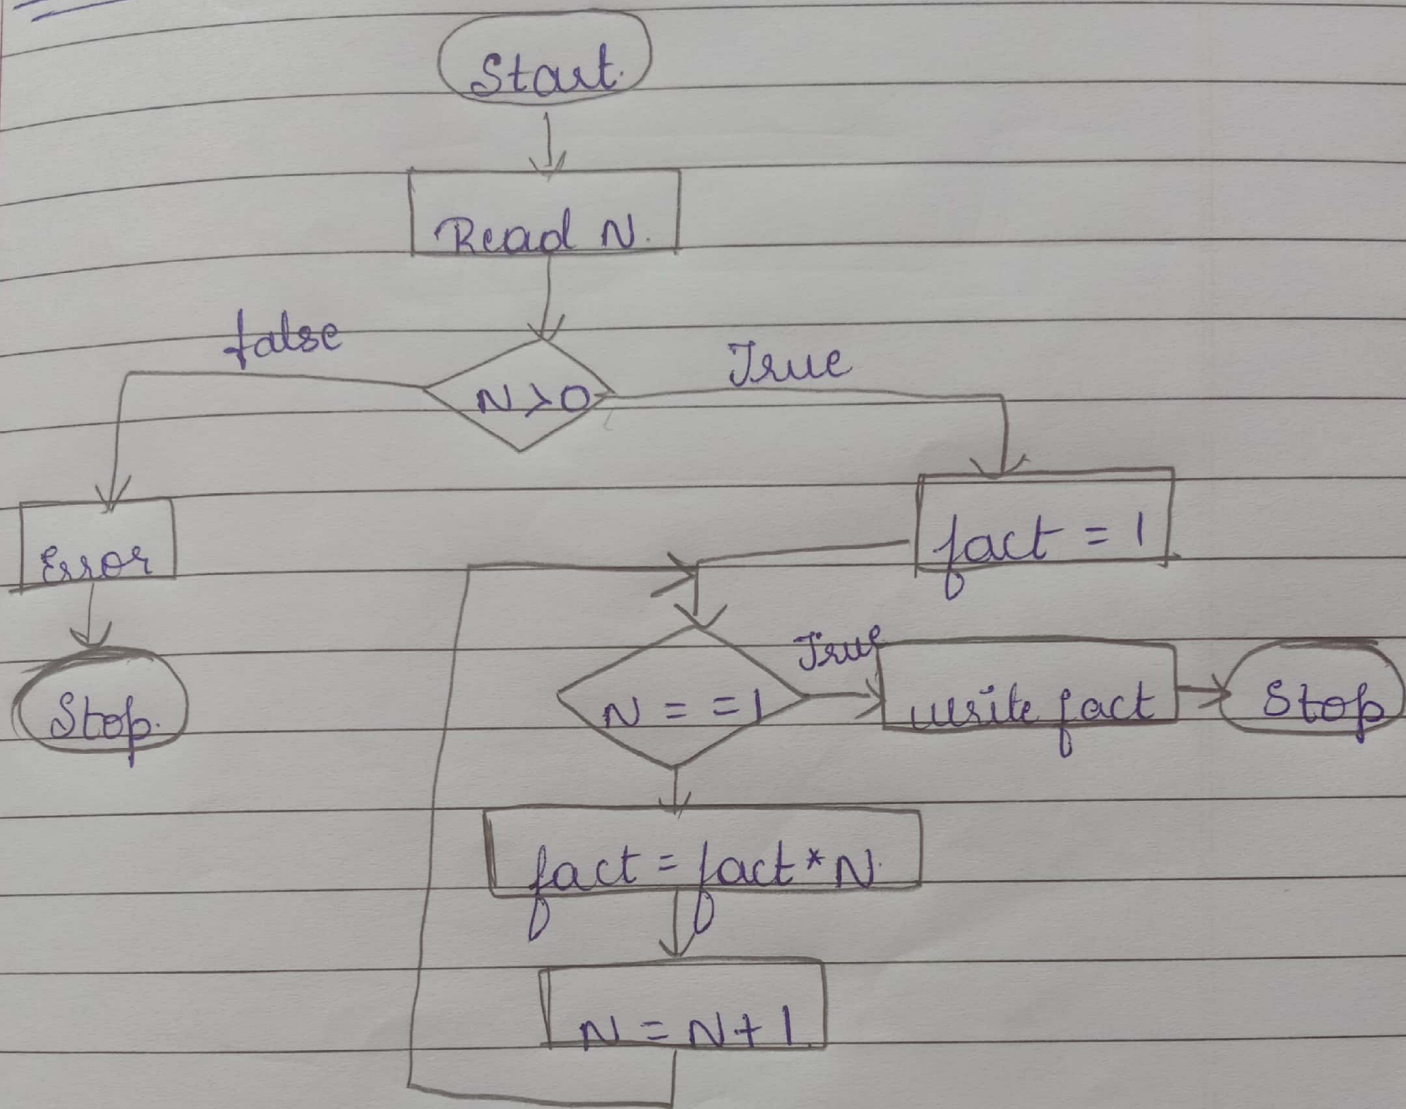 Start.
Read N.
false
True
N>0
Error
fact = 1
Stop.
N = = 1
True
write fact
Stop
fact = fact * N.
N = N + 1